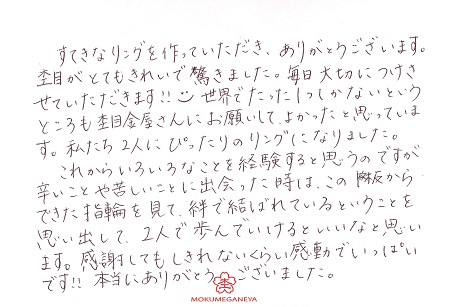 すてきなリングを作っていただき、ありがとうございます。
杢目がとてもきれいで驚きました。毎日大切につけさ
せていただきます!! 世界でたった1つしかないという
ところも杢目金屋さんにお願いしてよかったと思っていま
す。私たち2人にぴったりのリングになりました。
これからいろいろなことを経験すると思うのですが
辛いことや苦しいことに出会った時は、この板から
できた指輪を見て、絆で結ばれているということを
思い出して、2人で歩んでいけるといいなと思い
ます。感謝してもしきれないくらい感動でいっぱい
です!! 本当にありがとうございました。
MOKUMEGANEYA